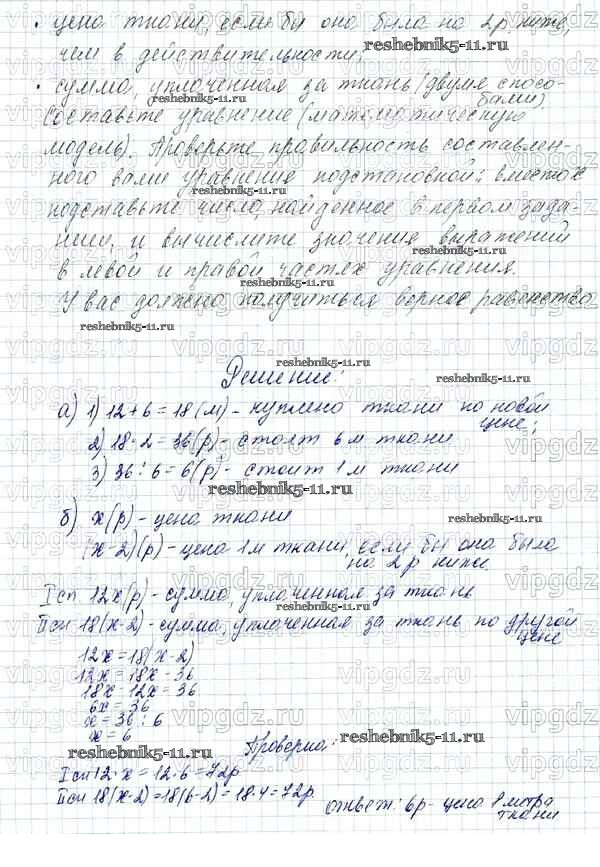 · цена ткани, если бы она была на 2р. ниже,
чем в действительности;
· сумма, уплаченная за ткань (двумя спосо-
бами)
Составьте уравнение (математическую
модель). Проверьте правильность составлен-
ного вами уравнения подстановкой: вместо х
подставьте число, найденное в первом зада-
нии, и вычислите значения выражений
в левой и правой частях уравнения.
У вас должно получиться верное равенство
Решение:
а) 1) 12 + 6 = 18 (м) - куплено ткани по новой
цене;
2) 18 · 2 = 36 (р) - стоят 6 м ткани
3) 36 : 6 = 6 (р) - стоит 1 м ткани
б) х(р) - цена ткани
(х-2)(р) - цена 1м ткани, если бы она была
на 2р ниже
I сп 12х(р) - сумма, уплаченная за ткань
II сп 18(х-2) - сумма, уплаченная за ткань по другой
цене
12х = 18(х-2)
12х = 18х - 36
18х - 12х = 36
6х = 36
х = 36 : 6
х = 6
Проверка:
I сп 12·х = 12·6 = 72р
II сп 18(х-2) = 18(6-2) = 18·4 = 72р.
ответ: 6р - цена 1 метра
ткани
reshebnik5-11.ru
vipgdz.ru